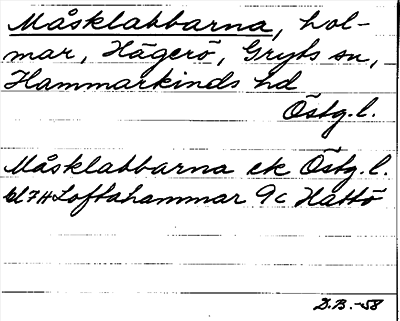 Måsklabbarna, hol-
mar, Hägerö, Gryts sn,
Hammarkinds hd
Östg. l.
Måsklabbarna ek Östg. l.
bl 7H Loftahammar 9c Hattö
D.B. -58